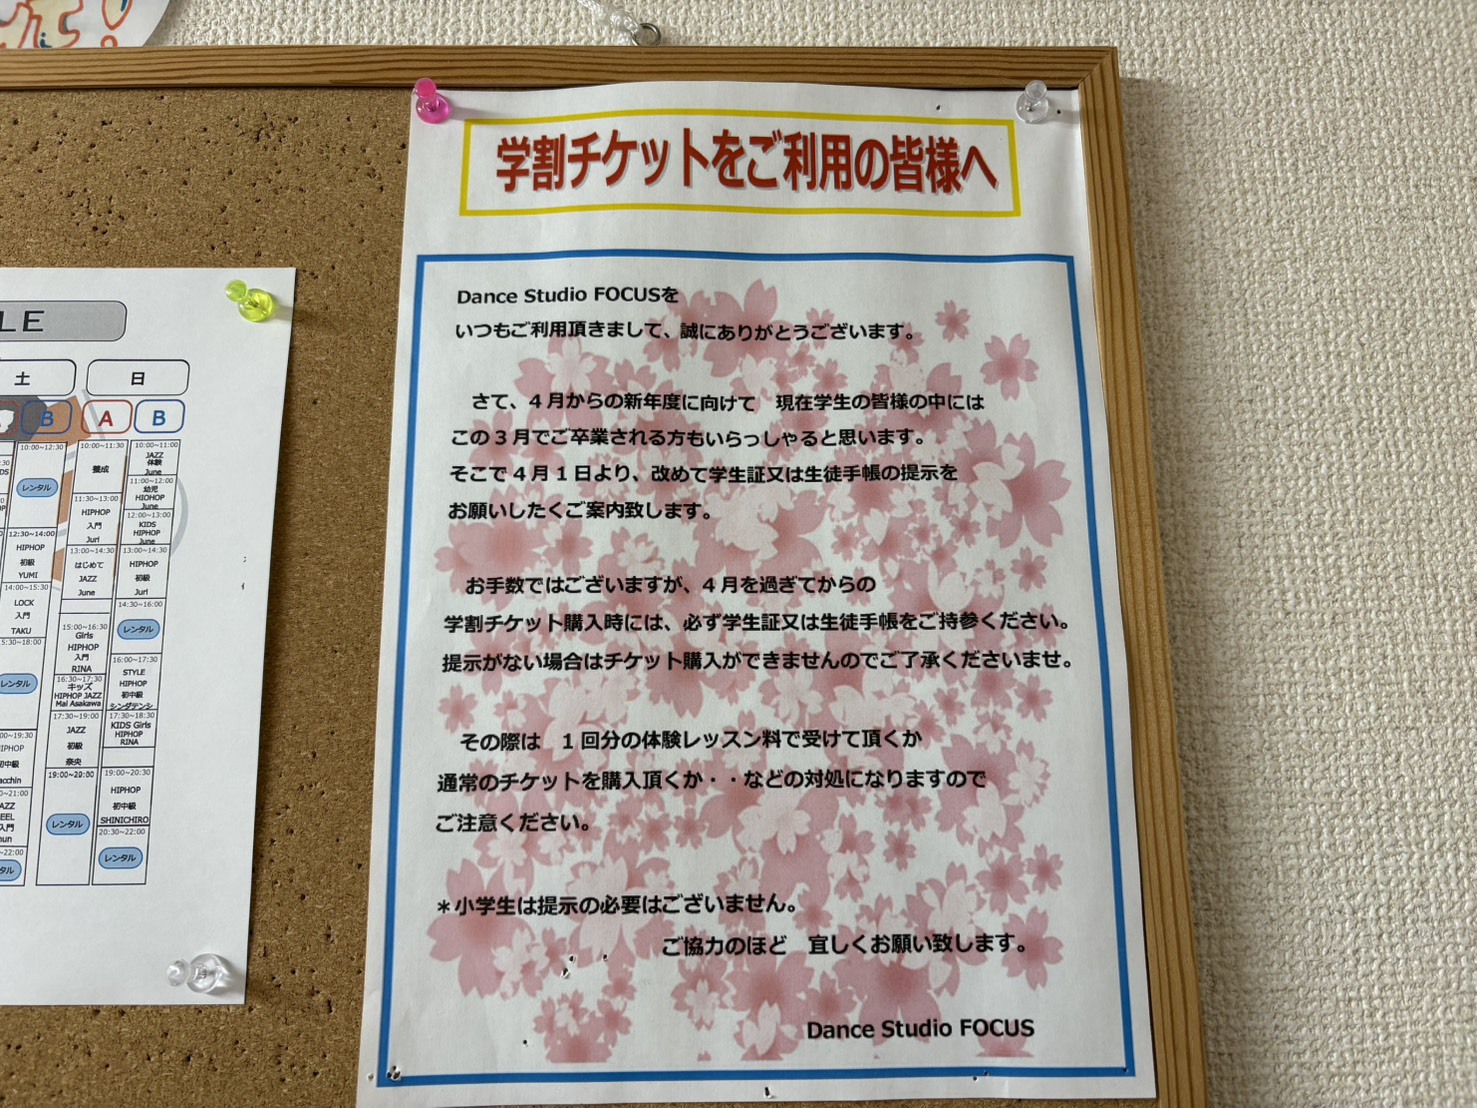 学割チケットをご利用の皆様へ
Dance Studio FOCUSを
いつもご利用頂きまして、誠にありがとうございます。
さて、4月からの新年度に向けて　現在学生の皆様の中には
この3月でご卒業される方もいらっしゃると思います。
そこで4月1日より、改めて学生証又は生徒手帳の提示を
お願いしたくご案内致します。
お手数ではございますが、4月を過ぎてからの
学割チケット購入時には、必ず学生証又は生徒手帳をご持参ください。
提示がない場合はチケット購入ができませんのでご了承くださいませ。
その際は　1回分の体験レッスン料で受けて頂くか
通常のチケットを購入頂くか・・などの対処になりますので
ご注意ください。
＊小学生は提示の必要はございません。
ご協力のほど　宜しくお願い致します。
Dance Studio FOCUS
LE
土
日
B
A
B
10:00~12:30
レンタル
12:30~14:00
HIPHOP
初級
YUMI
14:00~15:30
LOCK
入門
TAKU
5:30~18:00
レンタル
00~19:30
IPHOP
初中級
acchin
0~21:00
AZZ
EEL
入門
hun
~22:00
タル
10:00~11:30
養成
11:30~13:00
HIPHOP
入門
Juri
13:00~14:30
はじめて
JAZZ
June
15:00~16:30
Girls
HIPHOP
入門
RINA
16:30~17:30
キッズ
HIPHOP JAZZ
Mai Asakawa
17:30~19:00
JAZZ
初級
奈央
19:00~20:00
レンタル
10:00~11:00
JAZZ
体験
June
11:00~12:00
幼児
HIOHOP
June
12:00~13:00
KIDS
HIPHOP
June
13:00~14:30
HIPHOP
初級
Juri
14:30~16:00
レンタル
16:00~17:30
STYLE
HIPHOP
初中級
シンダテンシ
17:30~18:30
KIDS Girls
HIPHOP
RINA
19:00~20:30
HIPHOP
初中級
SHINICHIRO
20:30~22:00
レンタル